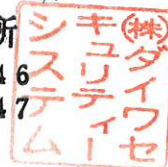 所
4 6
4 7
㈱ダイワセ
キュリティー
システム